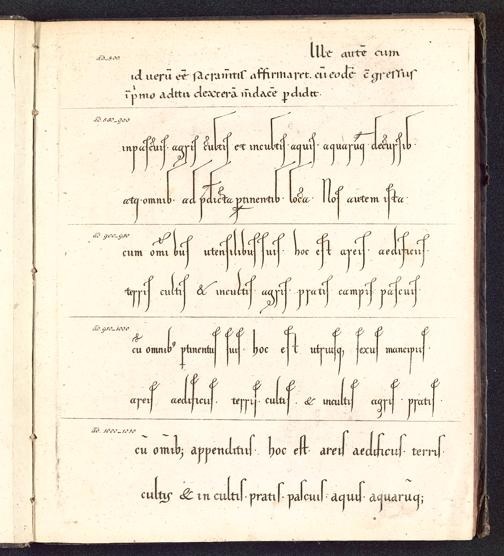 AD. 800
Ille autē cum
id uerū eē sacram̄tis affirmaret. cū eodē ēgressus
ip̄mo aditu dexterā m̄dacē pdidit.
AD. 850_900
inpascuis agris cultis et incultis aquis aquarūq decursib.
atq omnib. ad p̄dicta ptinentib loca. Nos autem ista.
AD. 900_950
cum om̄i bus utensilibus suis. hoc est areis aedificiis.
terris cultis & incultis agris pratis campis pascuis.
AD. 950_1000
cū omnib' ptinentiis suis. hoc est utriusq, sexus mancipiis.
areis aedificiis. terris cultis. & incultis agris pratis.
AD. 1000_1050
cū om̄ib; appenditiis. hoc est areis aedificiis terris.
cultis & in cultis. pratis. pascuis. aquis. aquarūq;